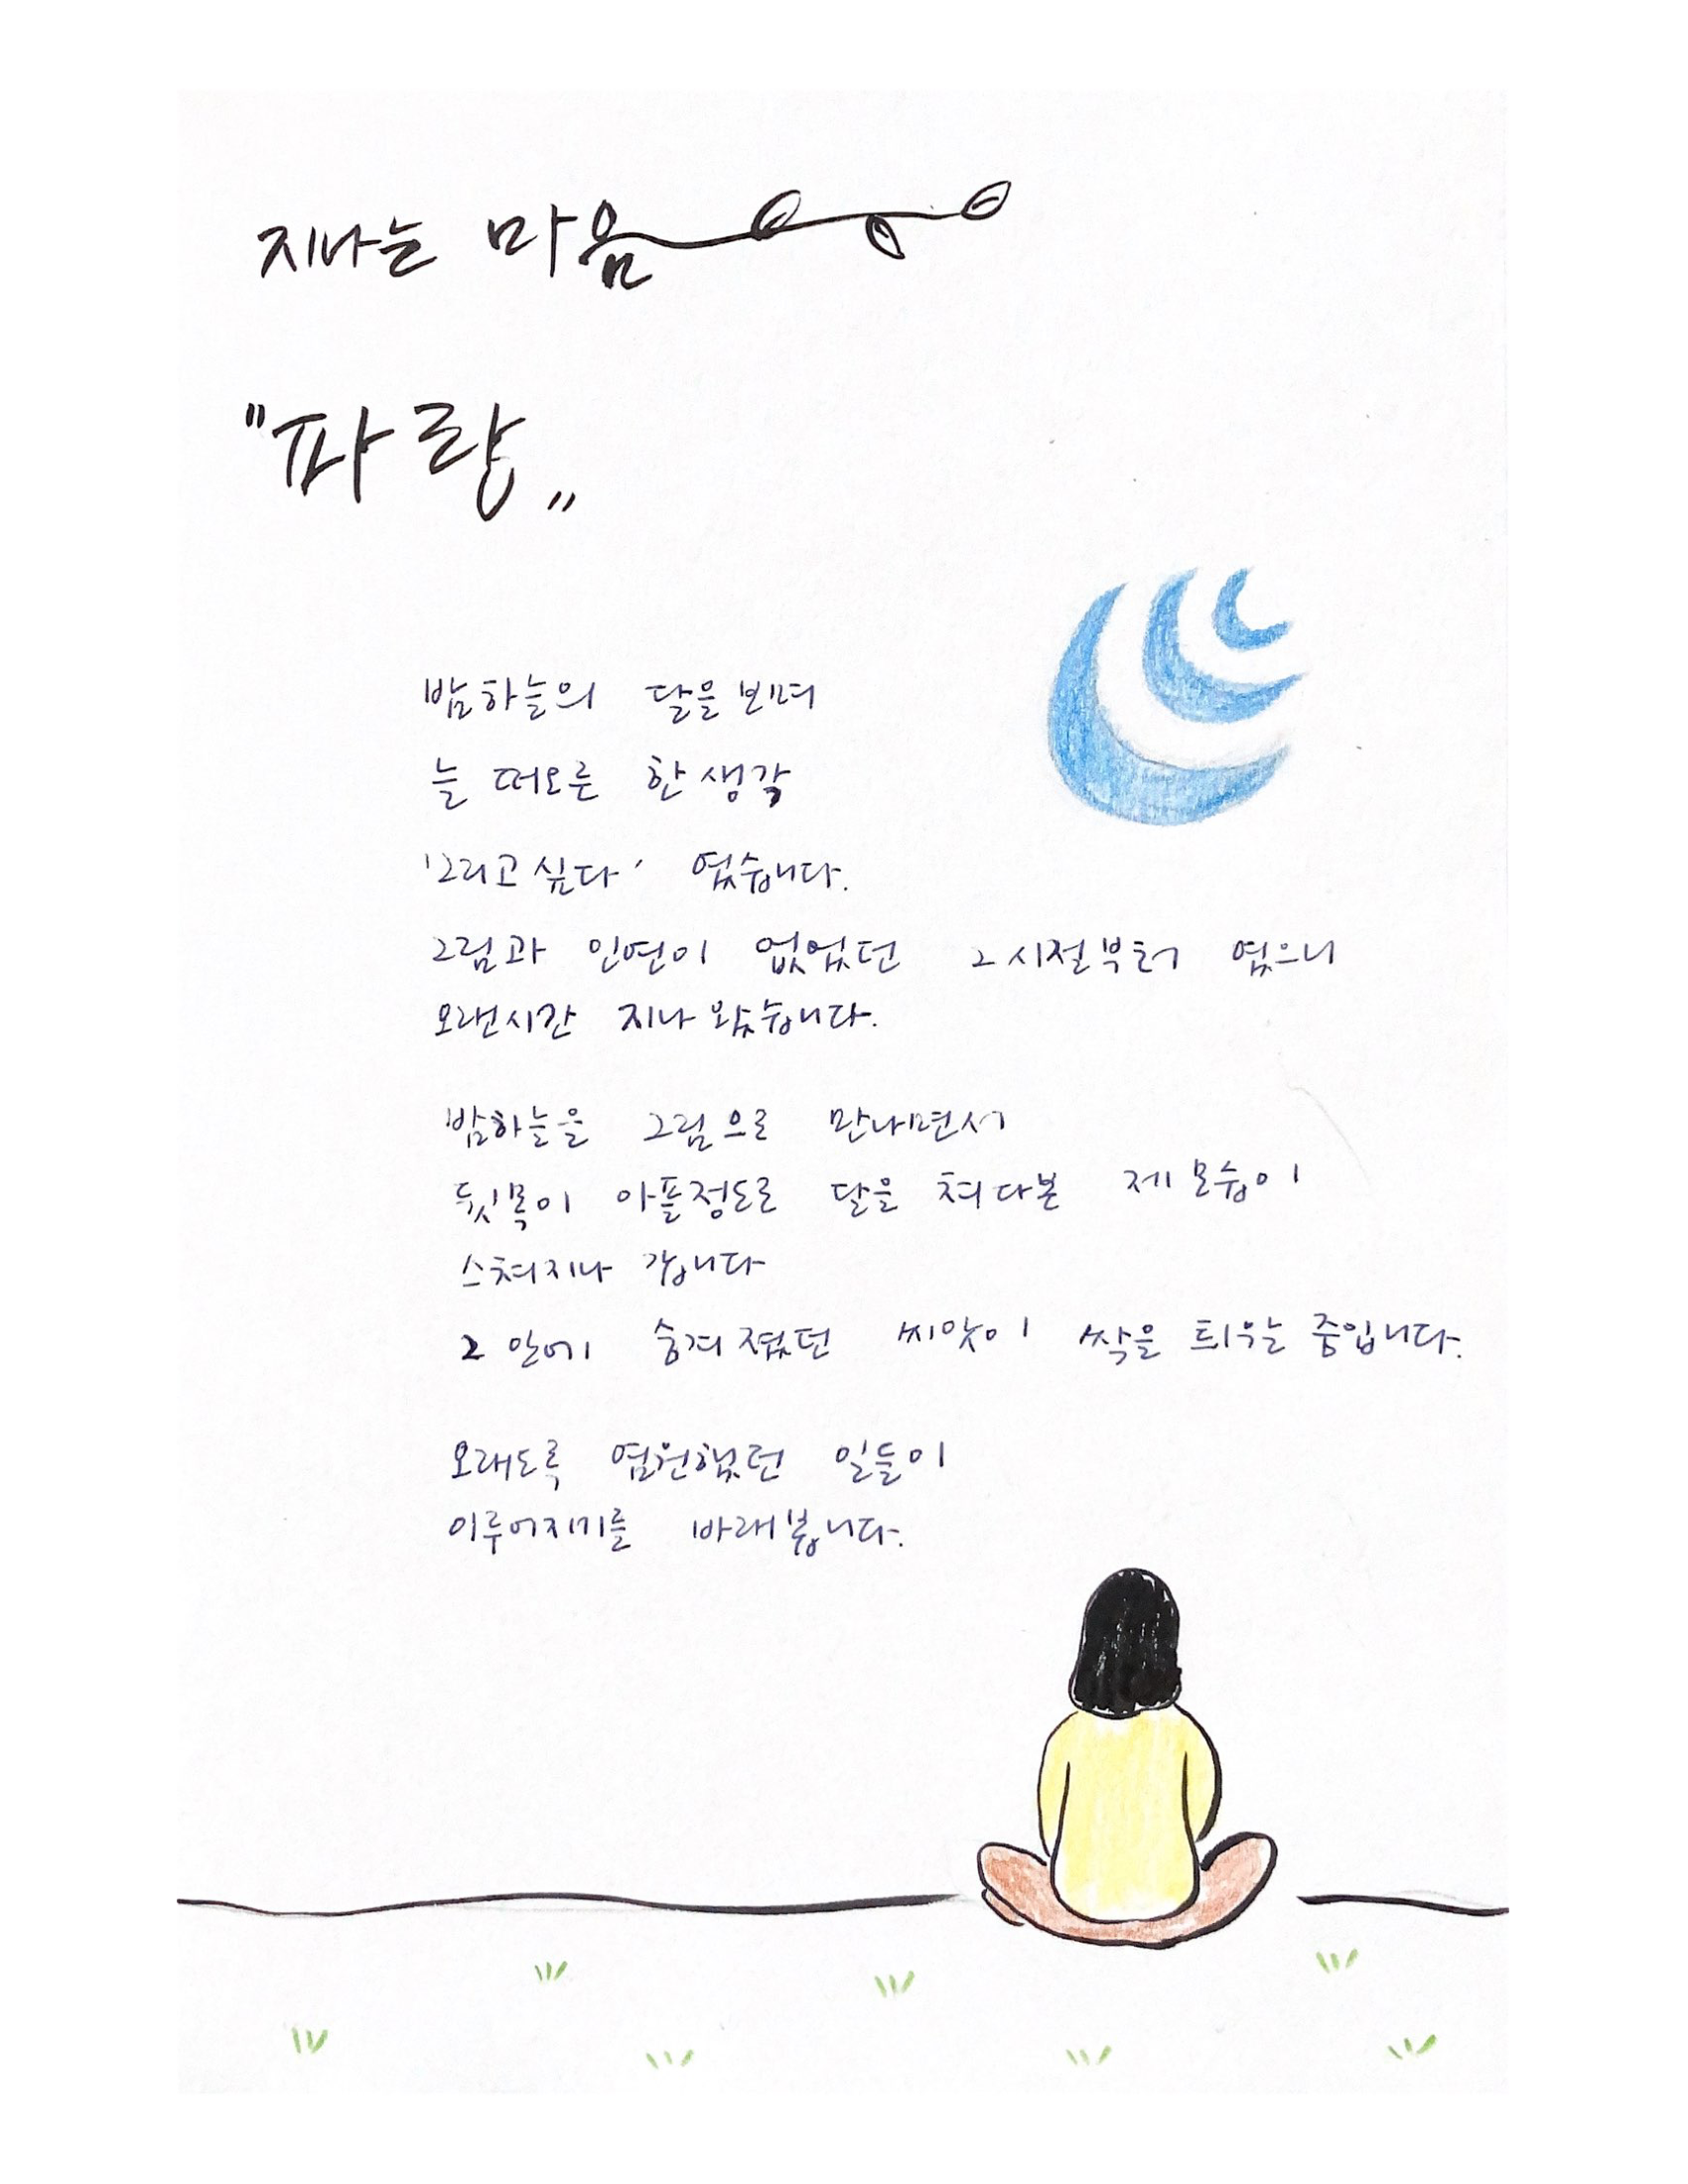 지나는 마음
"파랑"
밤하늘의 달을 보며
늘 떠오른 한 생각
'그리고 싶다' 였습니다.
그림과 인연이 없었던 그 시절부터 였으니
오랜시간 지나 왔습니다.
밤하늘을 그림으로 만나면서
뒷목이 아플정도로 달을 쳐다본 제 모습이
스쳐지나 갑니다
그 안에 숨겨 졌던 씨앗이 싹을 틔우는 중입니다.
오래도록 염원했던 일들이
이루어지기를 바래봅니다.